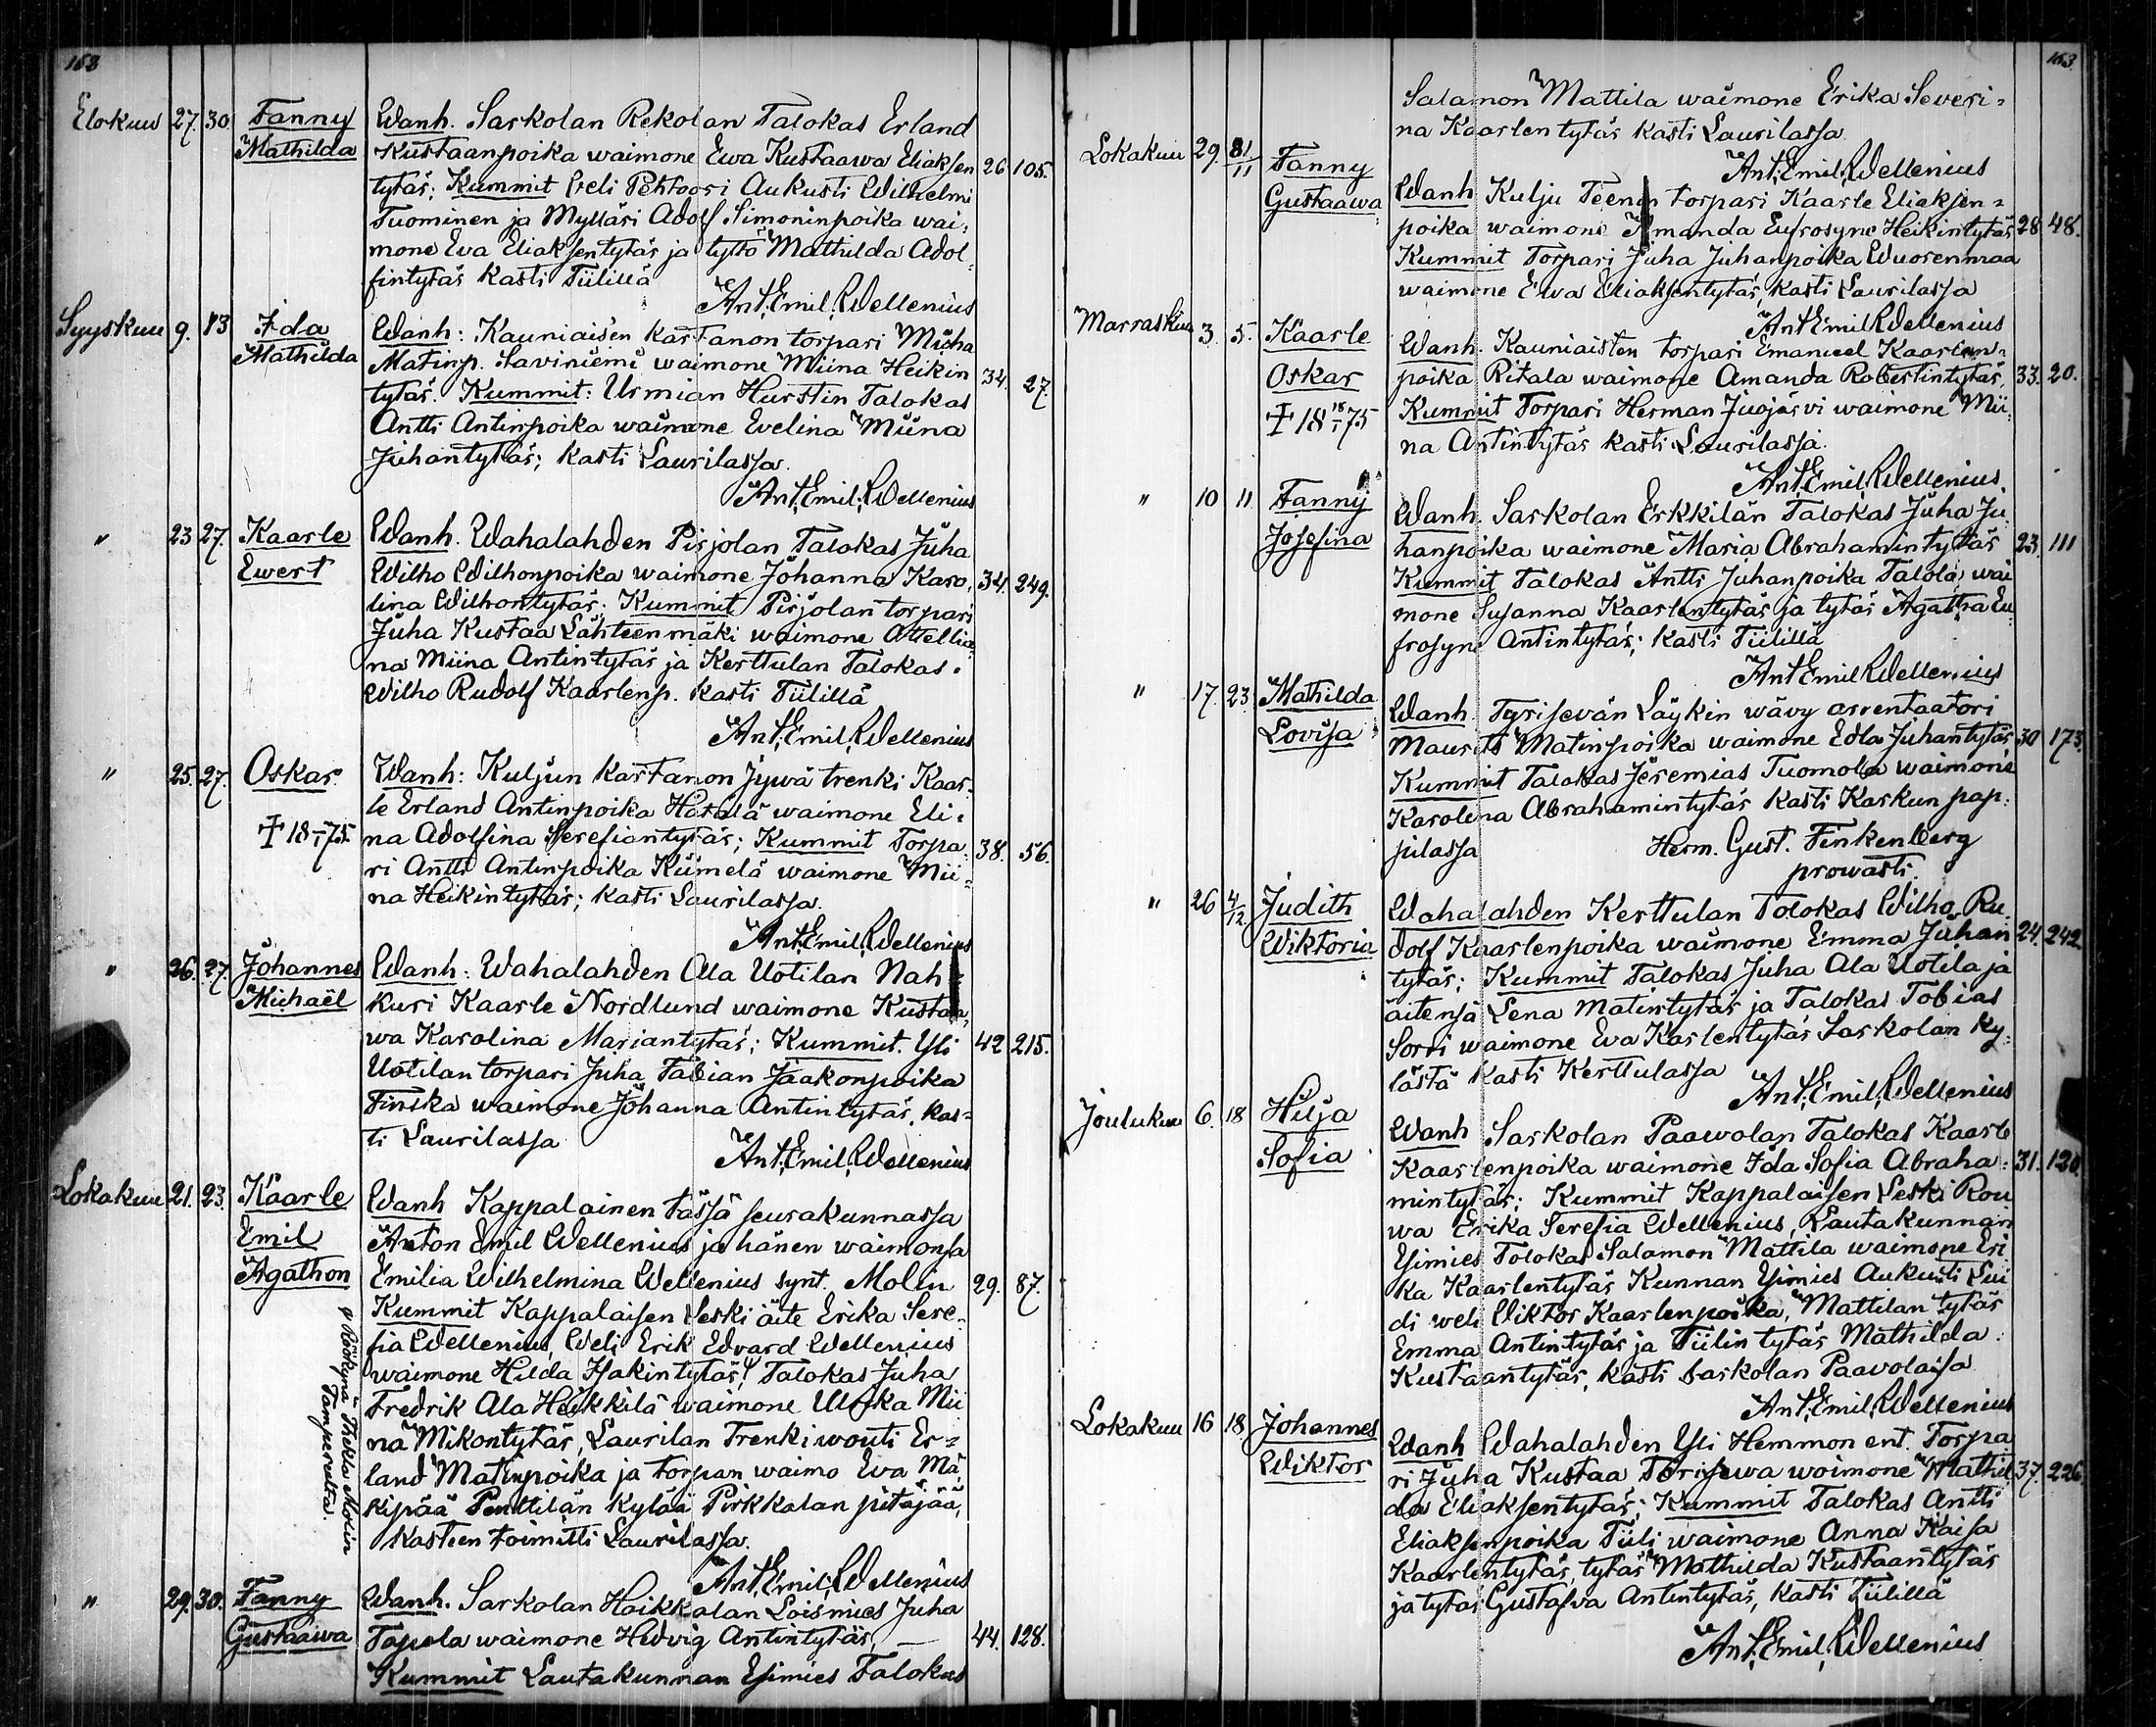 153
Elokuu 27. 30 Fanny Mathilda
Wanh. Sarkolan Rekolan Talokas Erland
Kustaanpoika waimone Ewa Kustaawa Eliaksen 26 105.
tytär; Kummit Veli Pehtoori Aukusti Wilhelmi
Tuominen ja Mylläri Adolf Simoninpoika wai-
mone Eva Eliaksentytär ja tyttö Mathilda Adol-
fintytär Kasti Tiilillä
Ant. Emil. Wellenius
Syyskuu 9. 13 Ida Mathilda
Wanh: Kauniaisen kartanon torpari Miska
Matinp. Saviniemi waimone Miina Heikin 34. 27.
tytär. Kummit: Urmian Hurstin Talokas
Antti Antinpoika waimone Evelina Miina
Juhantytär; kasti Laurilassa.
Ant. Emil. Wellenius
" 23 27. Kaarle Ewert
Wanh. Wahalahden Pirjolan Talokas Juha
Wilho Wilhonpoika waimone Johanna Karo- 34. 249.
lina Wilhontytär; Kummit Pirjolan torpari
Juha Kustaa Lähteenmäki waimone Attelia
na Miina Antintytär ja Kerttulan Talokas
Wilho Rudolf Kaarlenp. Kasti Tiilillä
Ant. Emil. Wellenius
" 25. 27. Oskar
Wanh: Kuljun kartanon Jywä trenki Kaar-
le Erland Antinpoika Hatala waimone Eli-
✝ 18 – 75. na Adolfina Serefiantytär; Kummit Torpa- 38. 56.
ri Antti Antinpoika Kiimelä waimone Mii-
na Heikintytär; kasti Laurilassa.
Ant. Emil. Wellenius
" 26. 27. Johannes Michaël
Wanh: Wahalahden Ala Uotilan Nah-
kuri Kaarle Nordlund waimone Kustaa-
wa Karolina Mariantytär; Kummit. Yli 42 215.
Uotilan torpari Juha Fabian Jaakonpoika
Finska waimone Johanna Antintytär, kas-
ti Laurilassa
Ant. Emil. Wellenius
Lokakuu 21. 23. Kaarle Emil Agathon
Wanh Kappalainen tässä seurakunnassa
Anton Emil Wellenius ja hänen waimonsa
Emilia Wilhelmina Wellenius synt. Molin 29. 87.
Kummit Kappalaisen leski äite Erika Sere-
fia Wellenius, Weli Erik Edvard Wellenius
waimone Hilda Isakintytär, φ Talokas Juha
Fredrik Ala Heikkilä waimone Ulrika Mii
na Mikontytär, Laurilan Trenkiwouti Er-
land Matinpoika ja torpan waimo Eva Mä-
kipää Penttilän kylää Pirkkalan pitäjää,
Kasteen toimitti Laurilassa.
Ant. Emil. Wellenius
φ Röökynä Thekla Molin
Tampereelta.
" 29. 30. Fanny Gustaawa
Wanh. Sarkolan Hoikkalan Loismies Juha
Tapola waimone Hedvig Antintytär, — 44. 128.
Kummit Lautakunnan Esimies Talokas
153.
Salamon Mattila waimone Erika Severi-
na Kaarlen tytär Kasti Laurilassa
Ant. Emil. Wellenius
Lokakuu 29. 81/11 Fanny Gustaawa
Wanh Kulju Teenin torpari Kaarle Eliaksen-
poika waimone Amanda Eufrosyne Heikintytär 28 48.
Kummit Torpari Juha Juhanpoika Wuorenmaa
waimone Ewa Eliaksentytär, kasti Laurilassa
Ant. Emil Wellenius
Marraskuu 3. 5. Kaarle Oskar
Wanh. Kauniaisten torpari Emanuel Kaarlen-
poika Ritala waimone Amanda Robertintytär, 33. 20.
✝ 18 18/1 75 Kummit Torpari Herman Juojärvi waimone Mii-
na Antintytär kasti Laurilassa.
Ant. Emil. Wellenius.
" 10 11 Fanny Josefina
Wanh. Sarkolan Erkkilän Talokas Juha Ju-
hanpoika waimone Maria Abrahamintytär 23. 111
Kummit Talokas Antti Juhanpoika Talola wai
mone Susanna Kaarlentytär ja tytär Agatha Eu
frosyne Antintytär; kasti Tiilillä
Ant Emil Wellenius
" 17. 23. Mathilda Lovisa
Wanh. Tyrisevän Läykin wävy arrentaatori
Maurits Matinpoika waimone Edla Juhantytär 30 173.
Kummit Talokas Jeremias Tuomola waimone
Karolina Abrahamintytär kasti Karkun pap-
pilassa Herm. Gust. Finkenberg
prowasti.
" 26 4/12 Judith Wiktoria
Wahalahden Kerttulan Talokas Wilho Ru-
dolf Kaarlenpoika waimone Emma Juhan 24. 242.
tytär; Kummit Talokas Juha Ala Uotila ja
äitensä Lena Matintytär ja Talokas Tobias
Sorri waimone Eva Karlentytär Sarkolan ky-
lästä kasti Kerttulassa
Ant. Emil. Wellenius
Joulukuu 6. 18 Hilja Sofia
Wanh Sarkolan Paawolan Talokas Kaarle
Kaarlenpoika waimone Ida Sofia Abraha- 31. 120.
mintytär; Kummit Kappalaisen Leski Rou
wa Erika Serefia Wellenius, Lautakunnan
Esimies Talokas Salamon Mattila waimone Eri
ka Kaarlentytär Kunnan Esimies Aukusti Lui
di weli Viktor Kaarlenpoika, Mattilan tytär
Emma Antintytär ja Tiilin tytär Mathilda
Kustaantytär, kasti Sarkolan Paavolassa
Ant. Emil. Wellenius
Lokakuu 16 18 Johannes Wiktor
Wanh Wahalahden Yli Hemmon ent. Torpa
ri Juha Kustaa Törisewa waimone Mathil 37. 226.
da Eliaksentytär; Kummit Talokas Antti
Eliaksenpoika Tiili waimone Anna Kaisa
Kaarlentytär, tytär Mathilda Kustaantytär
ja tytär Gustafva Antintytär, kasti Tiilillä
Ant. Emil. Wellenius